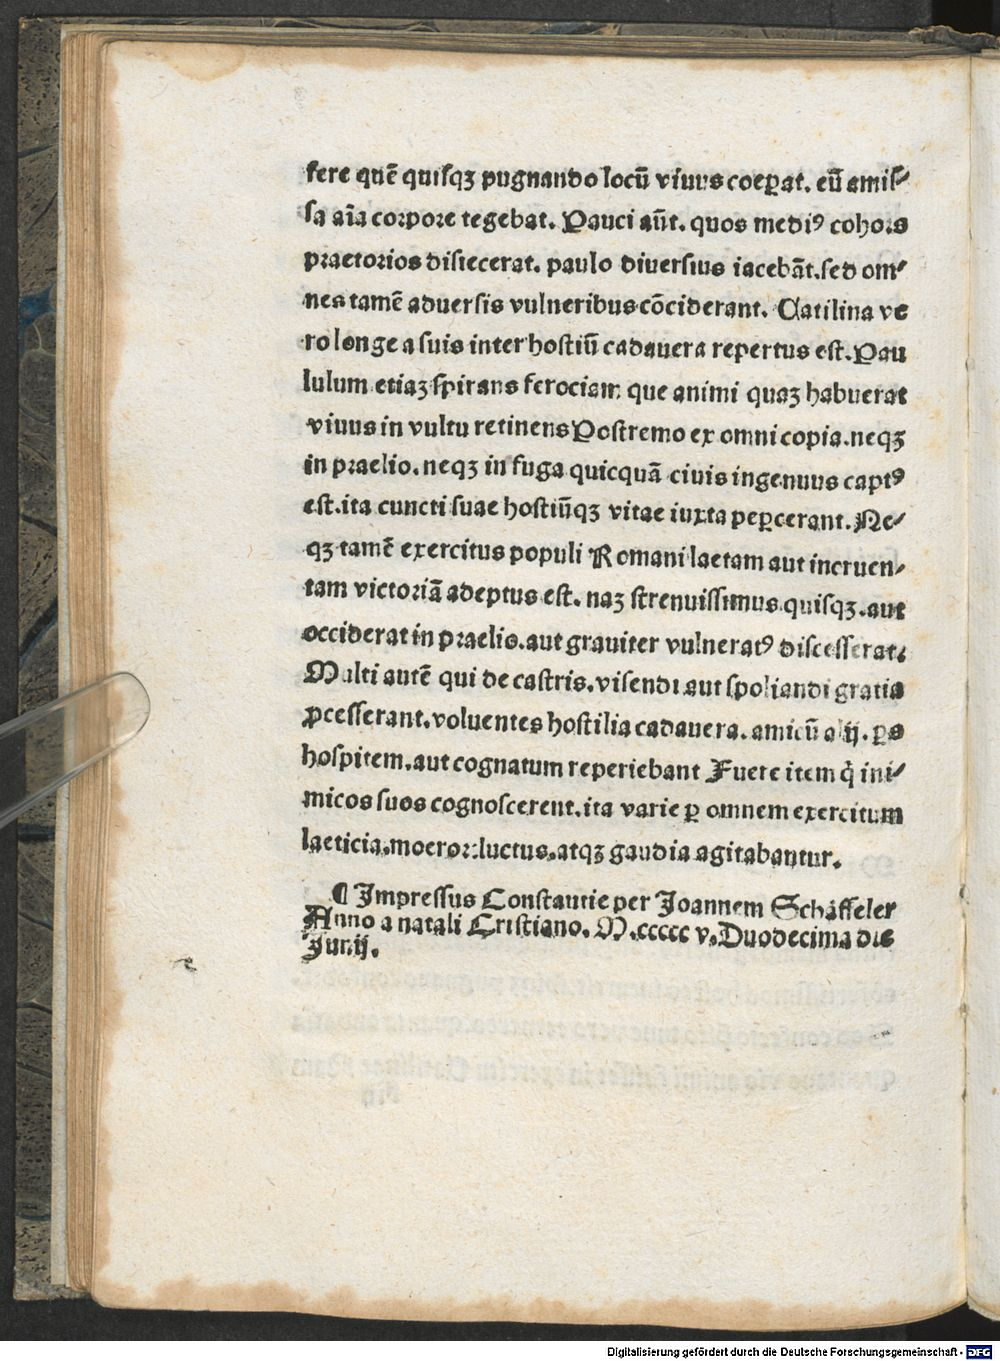 fere quē quiſqꝫ pugnando locū viuus coeꝑat. eū amiſ⸗
ſa aīa corpore tegebat. Pauci aūt. quos mediꝰ cohors
praetorios disiecerat. paulo diuersius iacebāt. ſed om⸗
nes tamē aduersis vulneribus cōciderant. Catilina ve
ro longe a suis inter hostiū cadauera repertus est. Pau
lulum etiaꝫ ſpirans ferociam que animi quaꝫ habuerat
viuus in vultu retinens Postremo ex omni copia. neqꝫ
in praelio. neqꝫ in fuga quicquā ciuis ingenuus captꝰ
est. ita cuncti suae hostiūqꝫ vitae iuxta peꝑcerant. Ne⸗
qꝫ tamē exercitus populi Romani laetam aut incruen⸗
tam victoriā adeptus est. naꝫ strenuissimus quiſqꝫ. aut
occiderat in praelio. aut grauiter vulneratꝰ discesserat.
Multi autē qui de castris. visendi aut spoliandi gratia
ꝓcesserant. voluentes hostilia cadauera. amicū alij. ꝑs
hospitem. aut cognatum reperiebant Fuere item q̄ ini⸗
micos suos cognoscerent. ita varie ꝑ omnem exercitum
laeticia. moeror. luctus. atqꝫ gaudia agitabantur.
¶ Impressus Constantie per Joannem Schäffeler
Anno a natali Cristiano. M.ccccc v. Duodecima die
Junij.
Digitalisierung gefördert durch die Deutsche Forschungsgemeinschaft - DFG